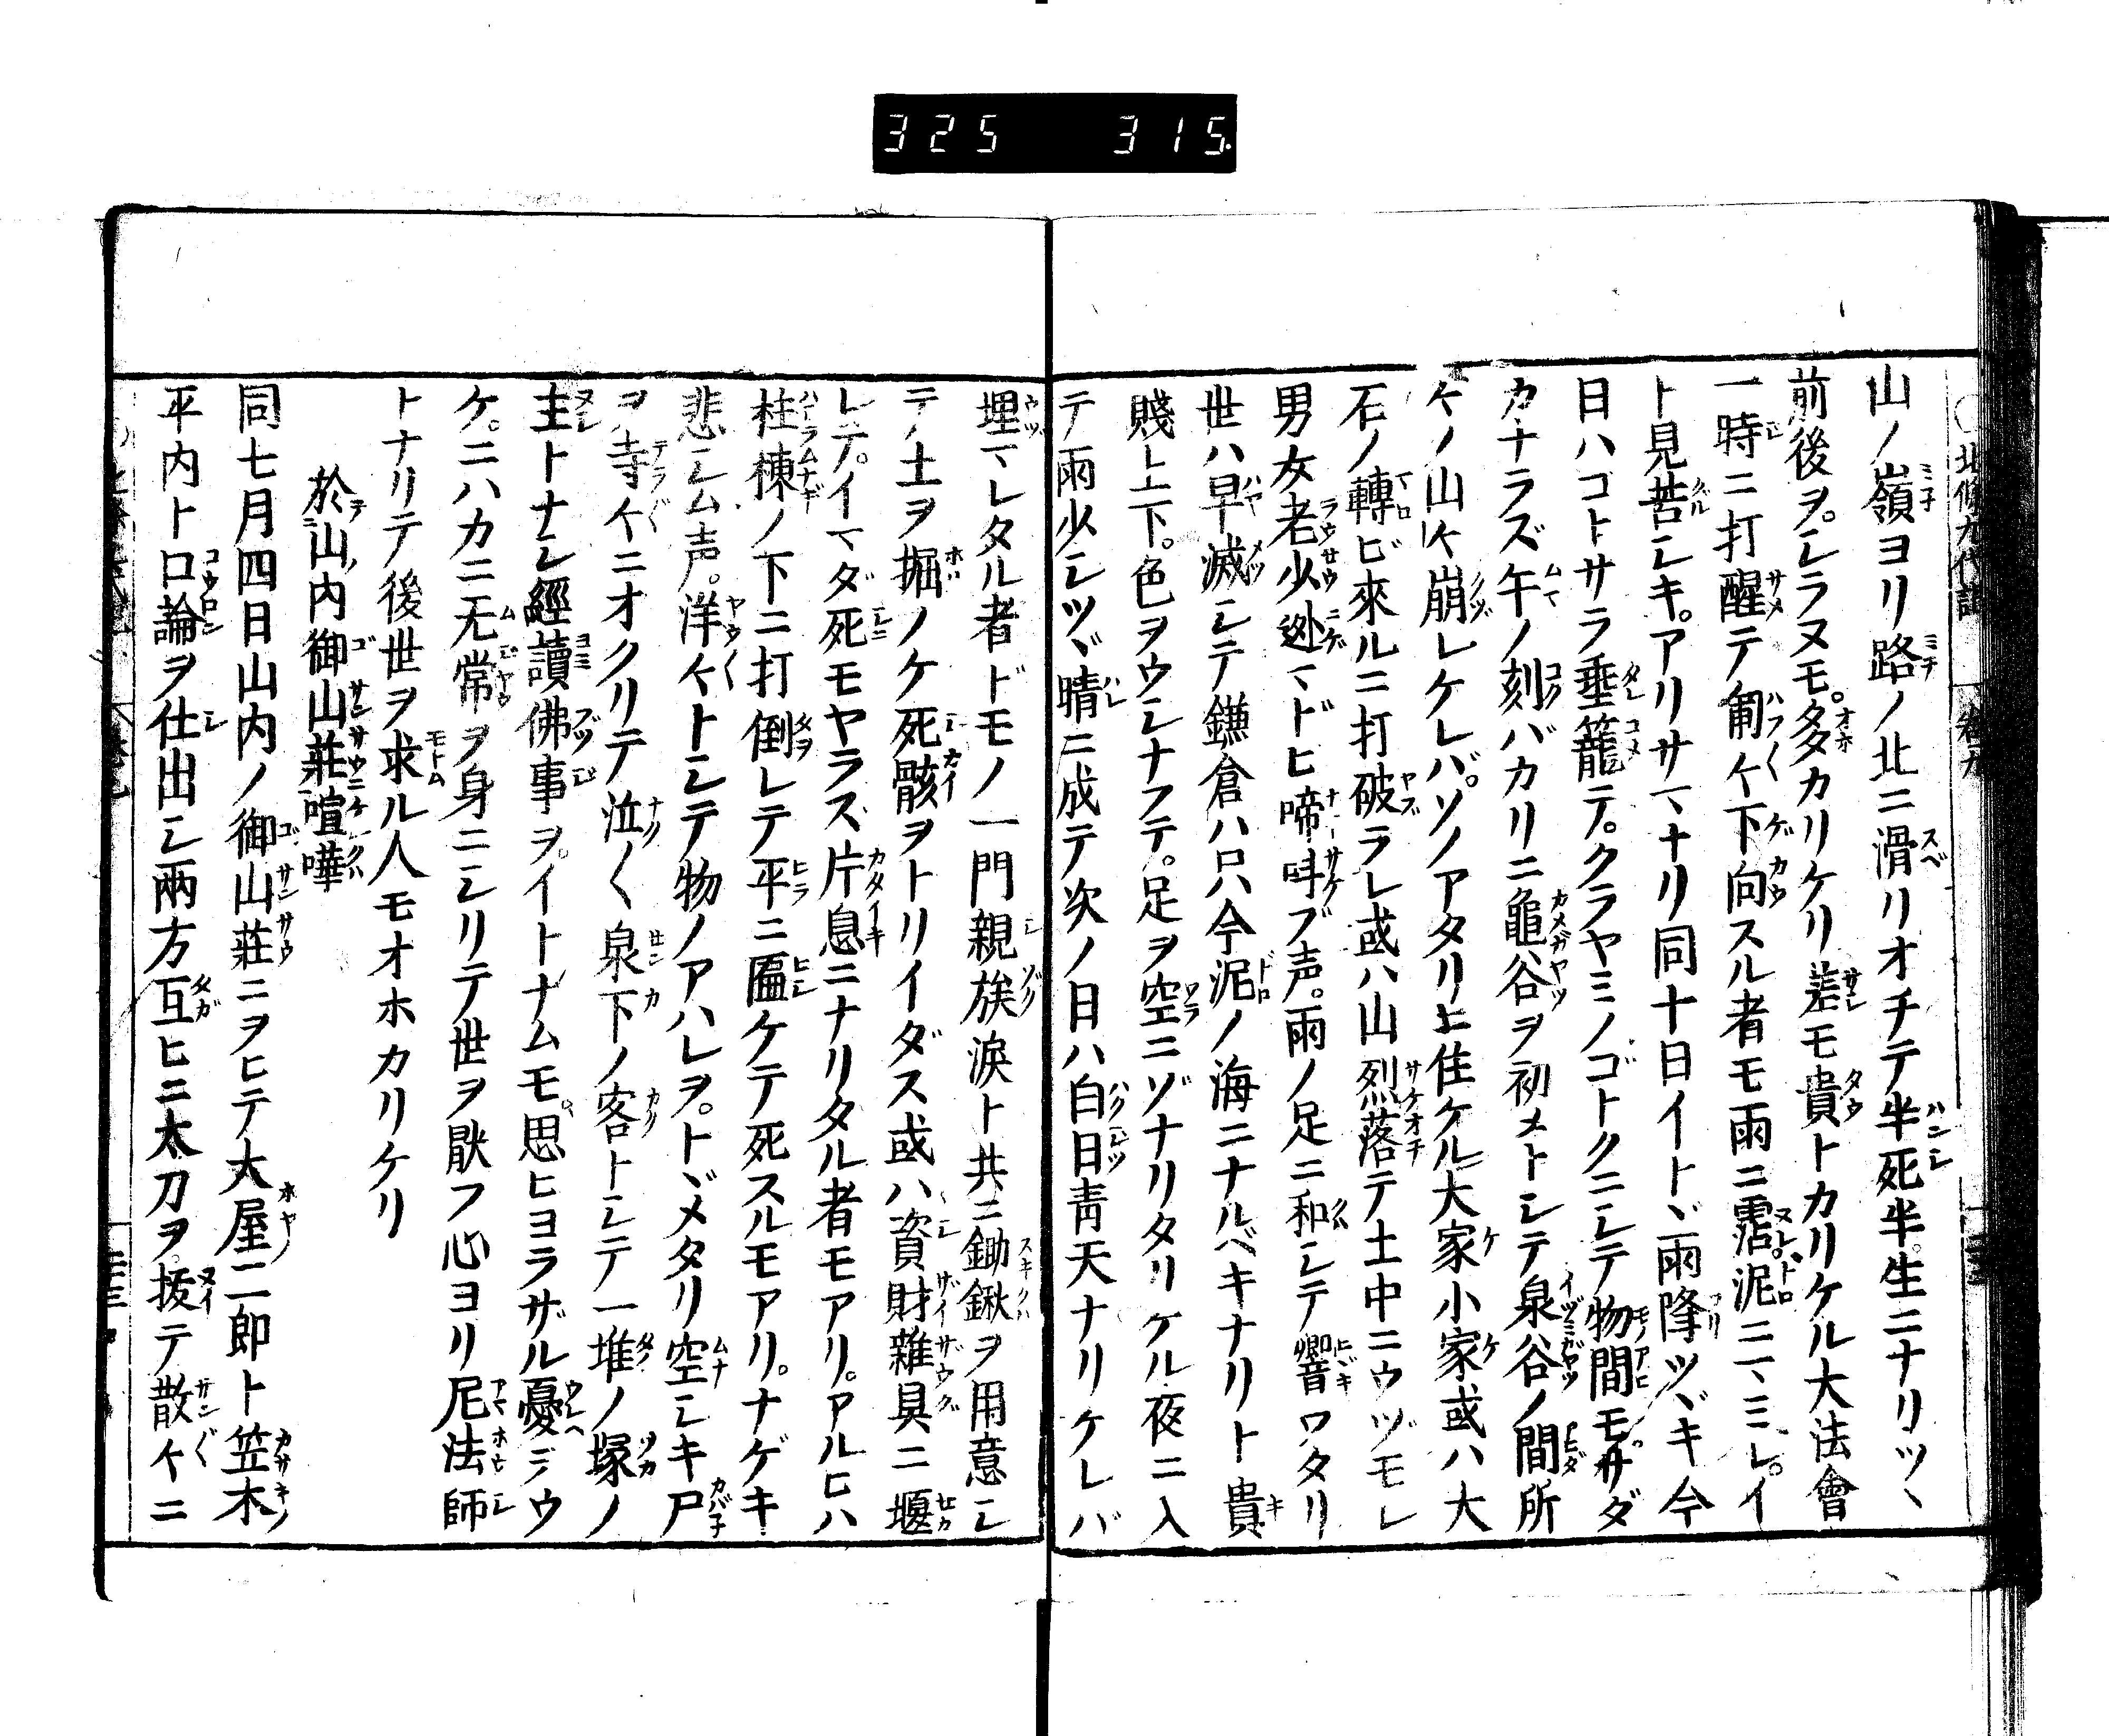 325 315
山ノ嶺ヨリ路ノ北ニ滑リオチテ半死半生ニナリツヽ
前後ヲ。シラヌモ。多カリケリ差モ貴トカリケル大法會
一時ニ打醒テ匍々下向スル者モ雨ニ霑。泥ニマミレ。イ
ト見苦シキ。アリサマナリ同十日イトヾ雨降ツヾキ今
日ハコトサラ垂籠テ。クラヤミノゴトクニシテ物間モ。サダ
カナラズ午ノ刻バカリニ龜谷ヲ初メトシテ泉谷ノ間所
々ノ山々崩レケレバ。ソノアタリニ住ケル大家小家或ハ大
石ノ轉ビ來ルニ打破ラレ或ハ山烈落テ土中ニウヅモレ
男女老少逃マドヒ啼叫ブ声。雨ノ足ニ和シテ響ワタリ
世ハ早滅シテ鎌倉ハ只今泥ノ海ニナルベキナリト貴
賤上下。色ヲウシナフテ。足ヲ空ニゾナリタリケル夜ニ入
テ雨少シツヾ晴ニ成テ次ノ日ハ白日青天ナリケレバ
埋マレタル者ドモノ一門親族涙ト共ニ鋤鍬ヲ用意シ
テノ土ヲ掘ノケ死骸ヲトリイダス或ハ資財雜具ニ堰
レテ。イマダ死モヤラズ片息ニナリタル者モアリ。アルヒハ
柱棟ノ下ニ打倒レテ平ニ匾ケテ死スルモアリ。ナゲキ
悲シム声。洋々トシテ物ノアハレヲ。トヾメタリ空シキ尸
ヲ寺々ニオクリテ泣〱泉下ノ客トシテ一堆ノ塚ノ
主トナシ經讀佛事ヲ。イトナムモ。思ヒヨラザル憂ミウ
ケ。ニハカニ无常ヲ身ニシリテ世ヲ厭フ心ヨリ尼法師
トナリテ後世ヲ求ル人モオホカリケリ
於山内御山莊喧嘩
同七月四日山内ノ御山莊ニヲヒテ大屋二郎ト笠木
平内ト口論ヲ仕出シ兩方互ヒニ太刀ヲ。拔テ散々ニ